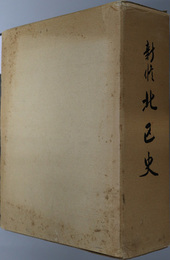 新修 北区史